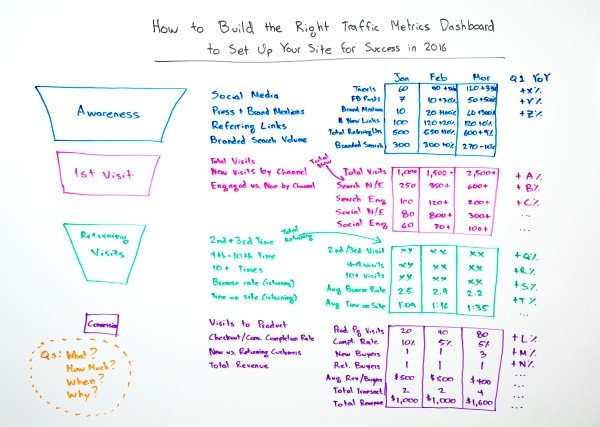 How to Build the Right Traffic Metrics Dashboard
to Set Up Your Site for Success in 2016
Awareness
Social Media
Press + Brand Mentions
Referring Links
Branded Search Volume
Jan Feb Mar Q1 YoY
Tweets 60 90 120 +X%
FB Posts 7 10 50 +Y%
Brand Mentions 10 20 60 +Z%
# New Links 100 120 120
Total Referring 500 550 600
Branded Search 300 300 270
1st Visit
Total Visits
New Visits by Channel
Engaged vs. Non by Channel
Total Now
Total Visits 1,000+ 1,500+ 2,500+ +A%
Search N/E 250 350+ 600+ +B%
Search Eng 100 120+ 200+ +C%
Social N/E 80 800+ 300+ ...
Social Eng 60 70+ 100+ ...
Returning Visits
2nd + 3rd Time
4th - 10th Time
10+ Times
Browse rate (returning)
Time on site (returning)
Total Returning
2nd/3rd Visit xx xx xx +Q%
4-9 Visits xx xx xx +R%
10+ Visits xx xx xx +S%
Avg Browse Rate 2.5 2.4 2.2 +T%
Avg Time on Site 1:09 1:16 1:35 ...
Conversion
Visits to Product
Checkout/Conv. Completion Rate
New vs. Returning Customers
Total Revenue
Prod. Pg Visits 20 40 80 +L%
Compl. Rate 10% 5% 5% +M%
New Buyers 1 1 3 +N%
Ret. Buyers 1 1 1 ...
Avg Rev/Buyer $500 $500 $400 ...
Total Transact 2 2 4 ...
Total Revenue $1,000 $1,000 $1,600 ...
Qs: What?
How Much?
When?
Why?